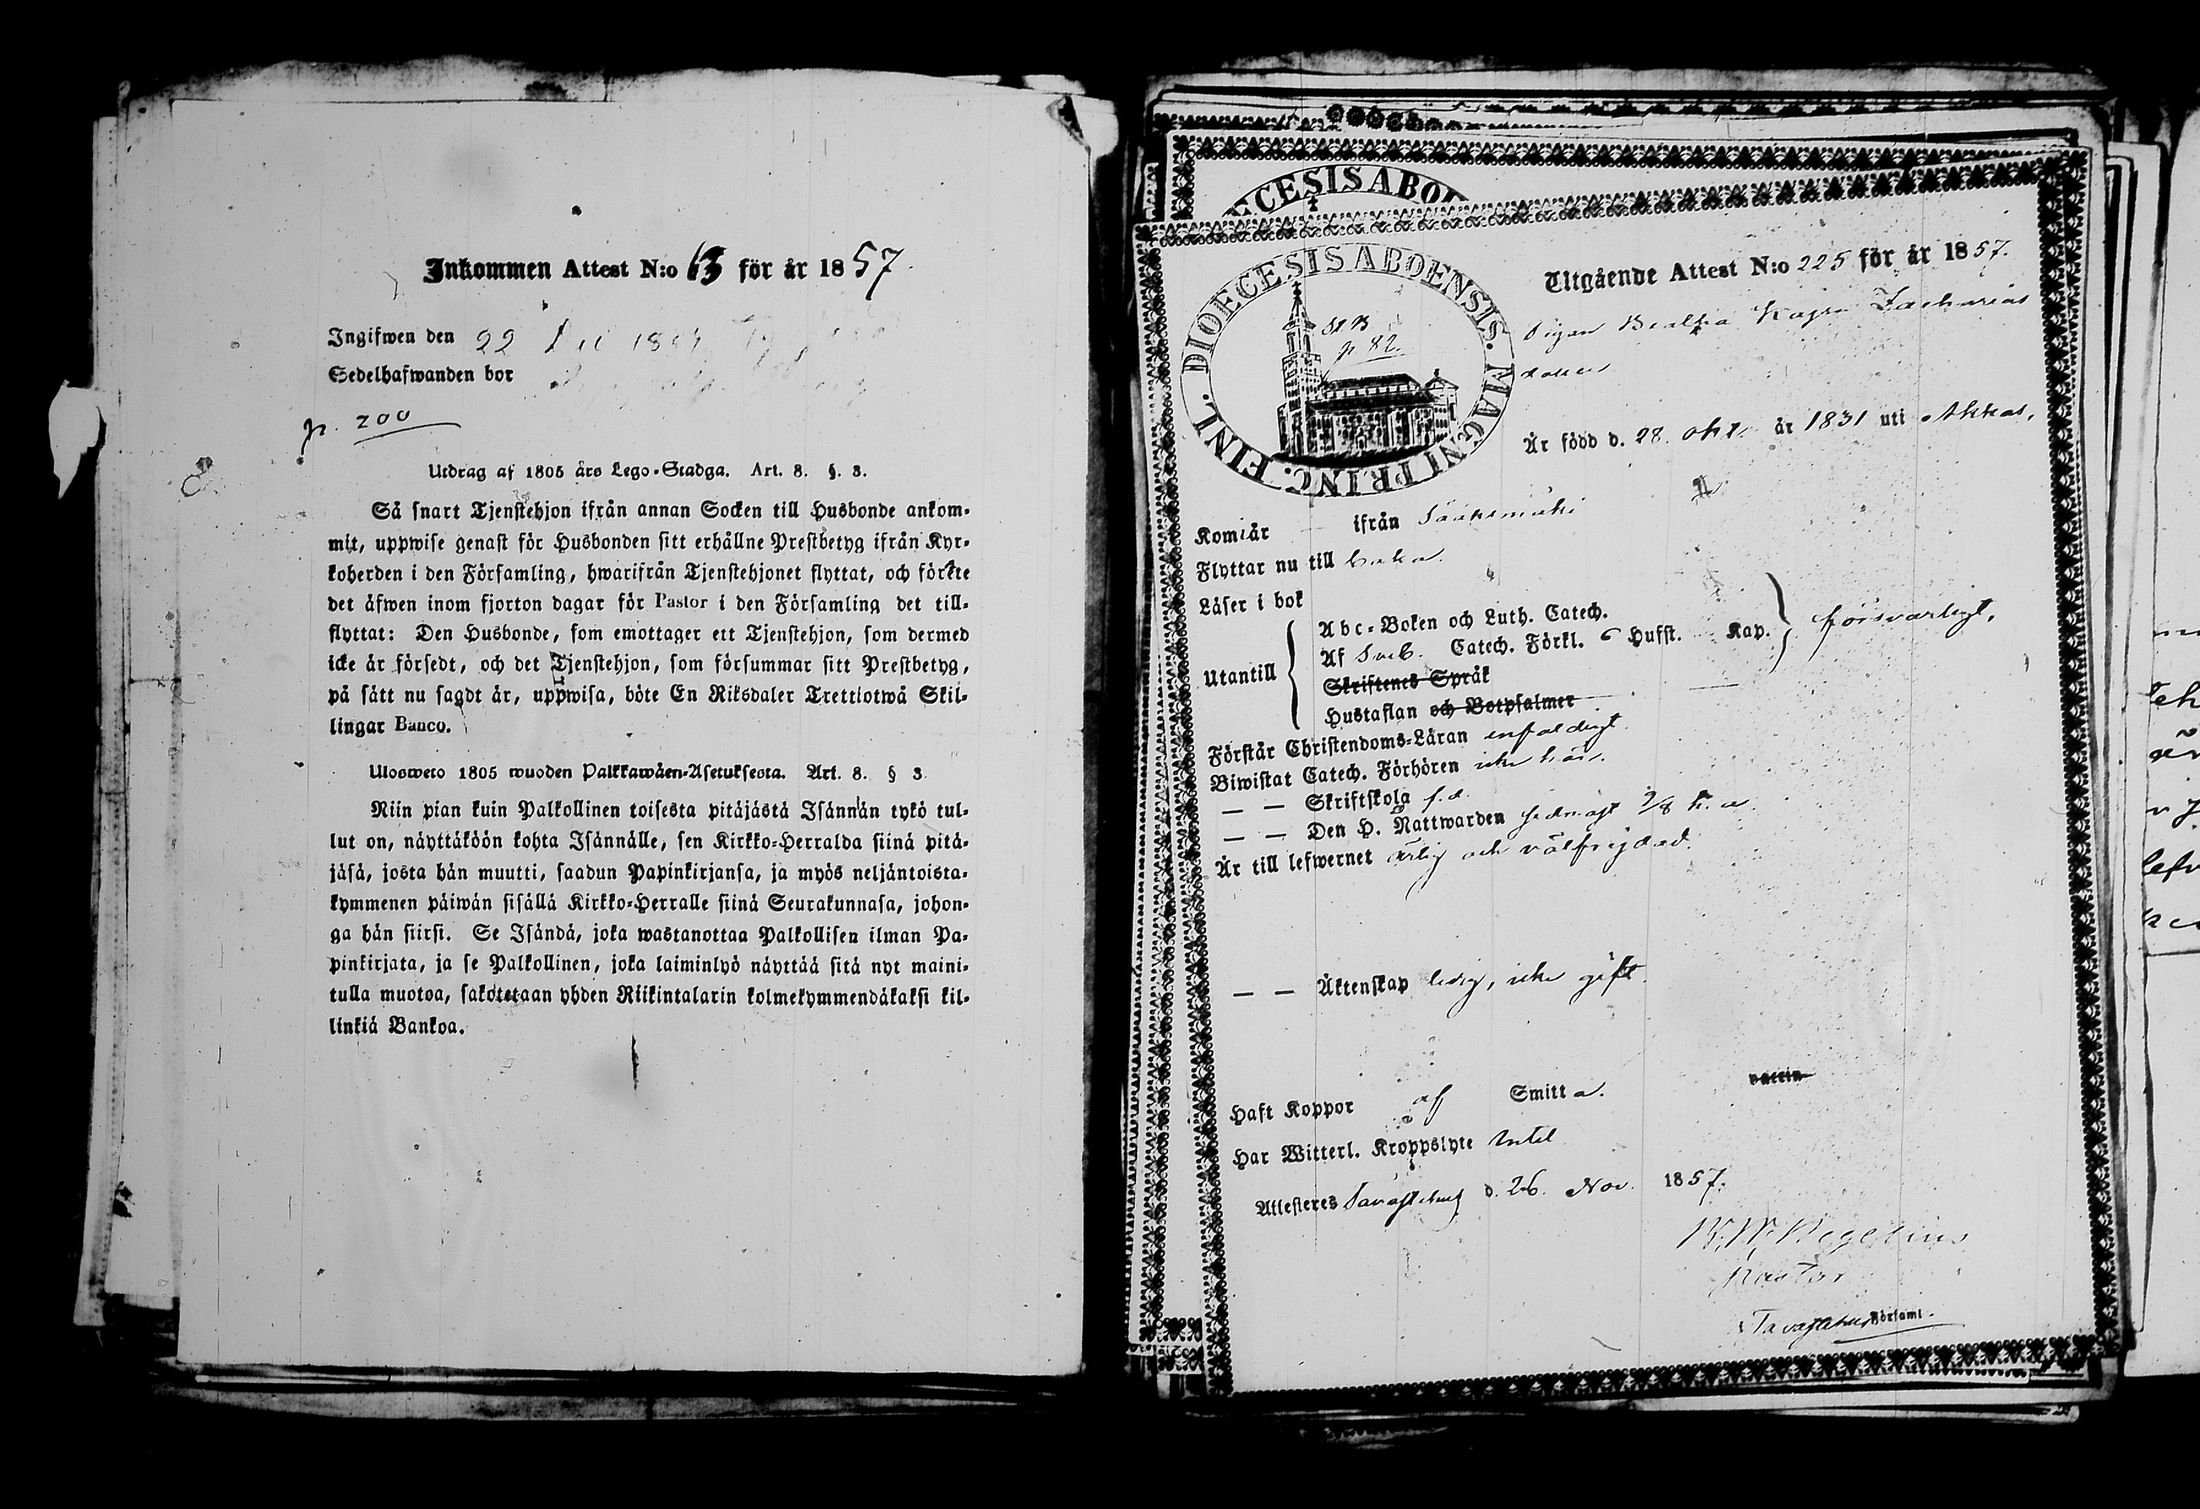 Inkommen Attest N:o 63 för år 1857.
Ingifwen den 22 Dec 1857
Sedelhafwanden bor
p. 200
Utdrag af 1805 års Lego-Stadga. Art. 8. §. 3.
Så snart Tjenstehjon ifrån annan Socken till Husbonde ankom-
mit, uppwise genast för Husbonden sitt erhållne Prestbetyg ifrån Kyr-
koherden i den Församling, hwarifrån Tjenstehjonet flyttat, och förete
det äfwen inom fjorton dagar för Pastor i den Församling det till-
flyttat: Den Husbonde, som emottager ett Tjenstehjon, som dermed
icke är försedt, och det Tjenstehjon, som försummar sitt Prestbetyg,
på sätt nu sagdt är, uppwisa, böte En Riksdaler Trettiotwå Skil-
lingar Banco.
Ulosweto 1805 wuoden Palkkawäen-Asetuksesta. Art. 8. § 3
Niin pian kuin Palkollinen toisesta pitäjästä Isännän tykö tul-
lut on, näyttäköön kohta Isännälle, sen Kirkko-Herralda siinä pitä-
jäsä, josta hän muutti, saadun Papinkirjansa, ja myös neljäntoista-
kymmenen päiwän sisällä Kirkko-Herralle siinä Seurakunnasa, johon-
ga hän siirsi. Se Isändä, joka wastanottaa Palkollisen ilman Pa-
pinkirjata, ja se Palkollinen, joka laiminlyö näyttää sitä nyt maini-
tulla muotoa, sakotetaan yhden Riikintalarin kolmekymmendäkaksi kil-
linkiä Bankoa.
CESIS ABOE
DIOECESIS ABOENSIS. MAGNI PRINC. FINL.
p 82.
Utgående Attest N:o 225 för år 1857.
Pigan Kajsa Zacharias
dotter
Är född d. 28 okt. år 1831 uti Akkas,
Komiår ifrån Sääksmäki
Flyttar nu till
Läser i bok
Utantill
Abc-Boken och Luth. Catech.
Af Sveb. Catech. Förkl. Hufst. Kap. försvarligt,
Skriftenes Språk
Hustaflan och Botpsalmer
Förstår Christendoms-Läran enfaldigt
Biwistat Catech. Förhören icke här.
— — Skriftskola s. d.
— — Den H. Nattwarden sednast 9/8 h. a.
Är till lefwernet ärlig och välfrejdad.
— — Äktenskap ledig, icke gift.
Haft Koppor af Smitta. vaccin
Har Witterl. Kroppslyte Intet
Attesteres Tavastehus d. 26. Nov. 1857.
Pastor
i Tavastehus Församl